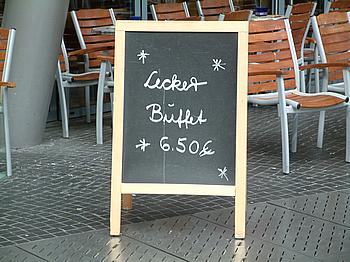 Lecker
Büffet
6.50€